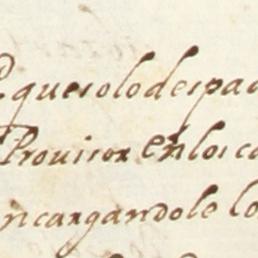 que solo despa
Provisor en los c
ncargandole lo